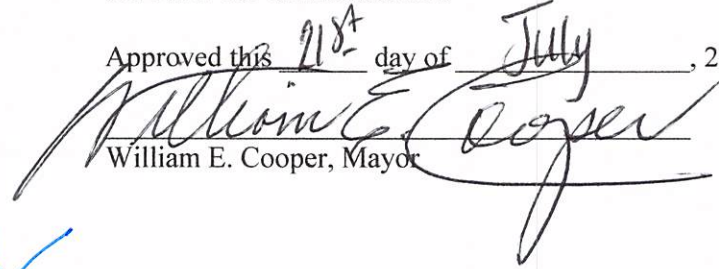 Approved this 21st day of July, 2
William E. Cooper
William E. Cooper, Mayor